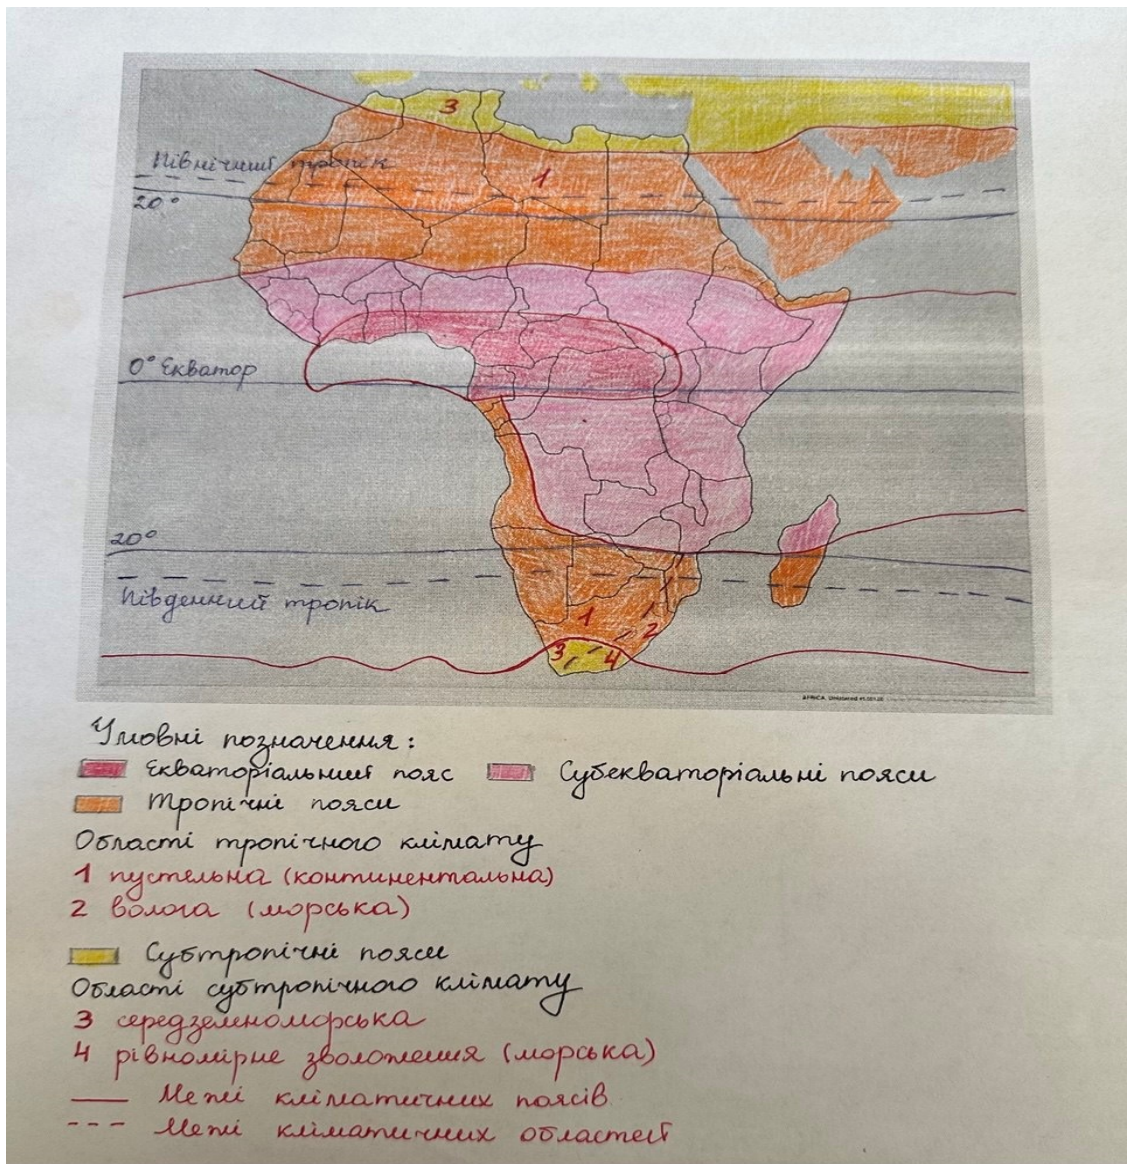 3
Північний тропік
1
20°
0° Екватор
20°
Південний тропік
1
2
3
4
AFRICA
Умовні позначення:
Екваторіальний пояс Субекваторіальні пояси
Тропічні пояси
Області тропічного клімату
1 пустельна (континентальна)
2 волога (морська)
Субтропічні пояси
Області субтропічного клімату
3 середземноморська
4 рівномірне зволоження (морська)
Межі кліматичних поясів
Межі кліматичних областей